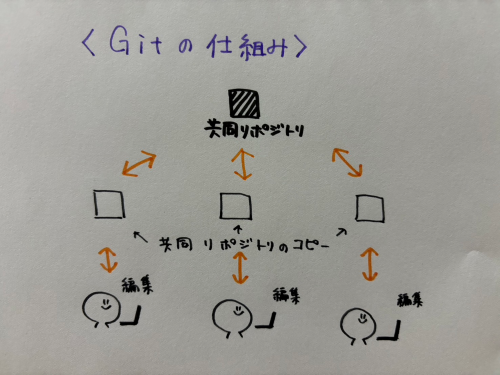 〈Gitの仕組み〉
共同リポジトリ
共同リポジトリのコピー
編集
編集
編集